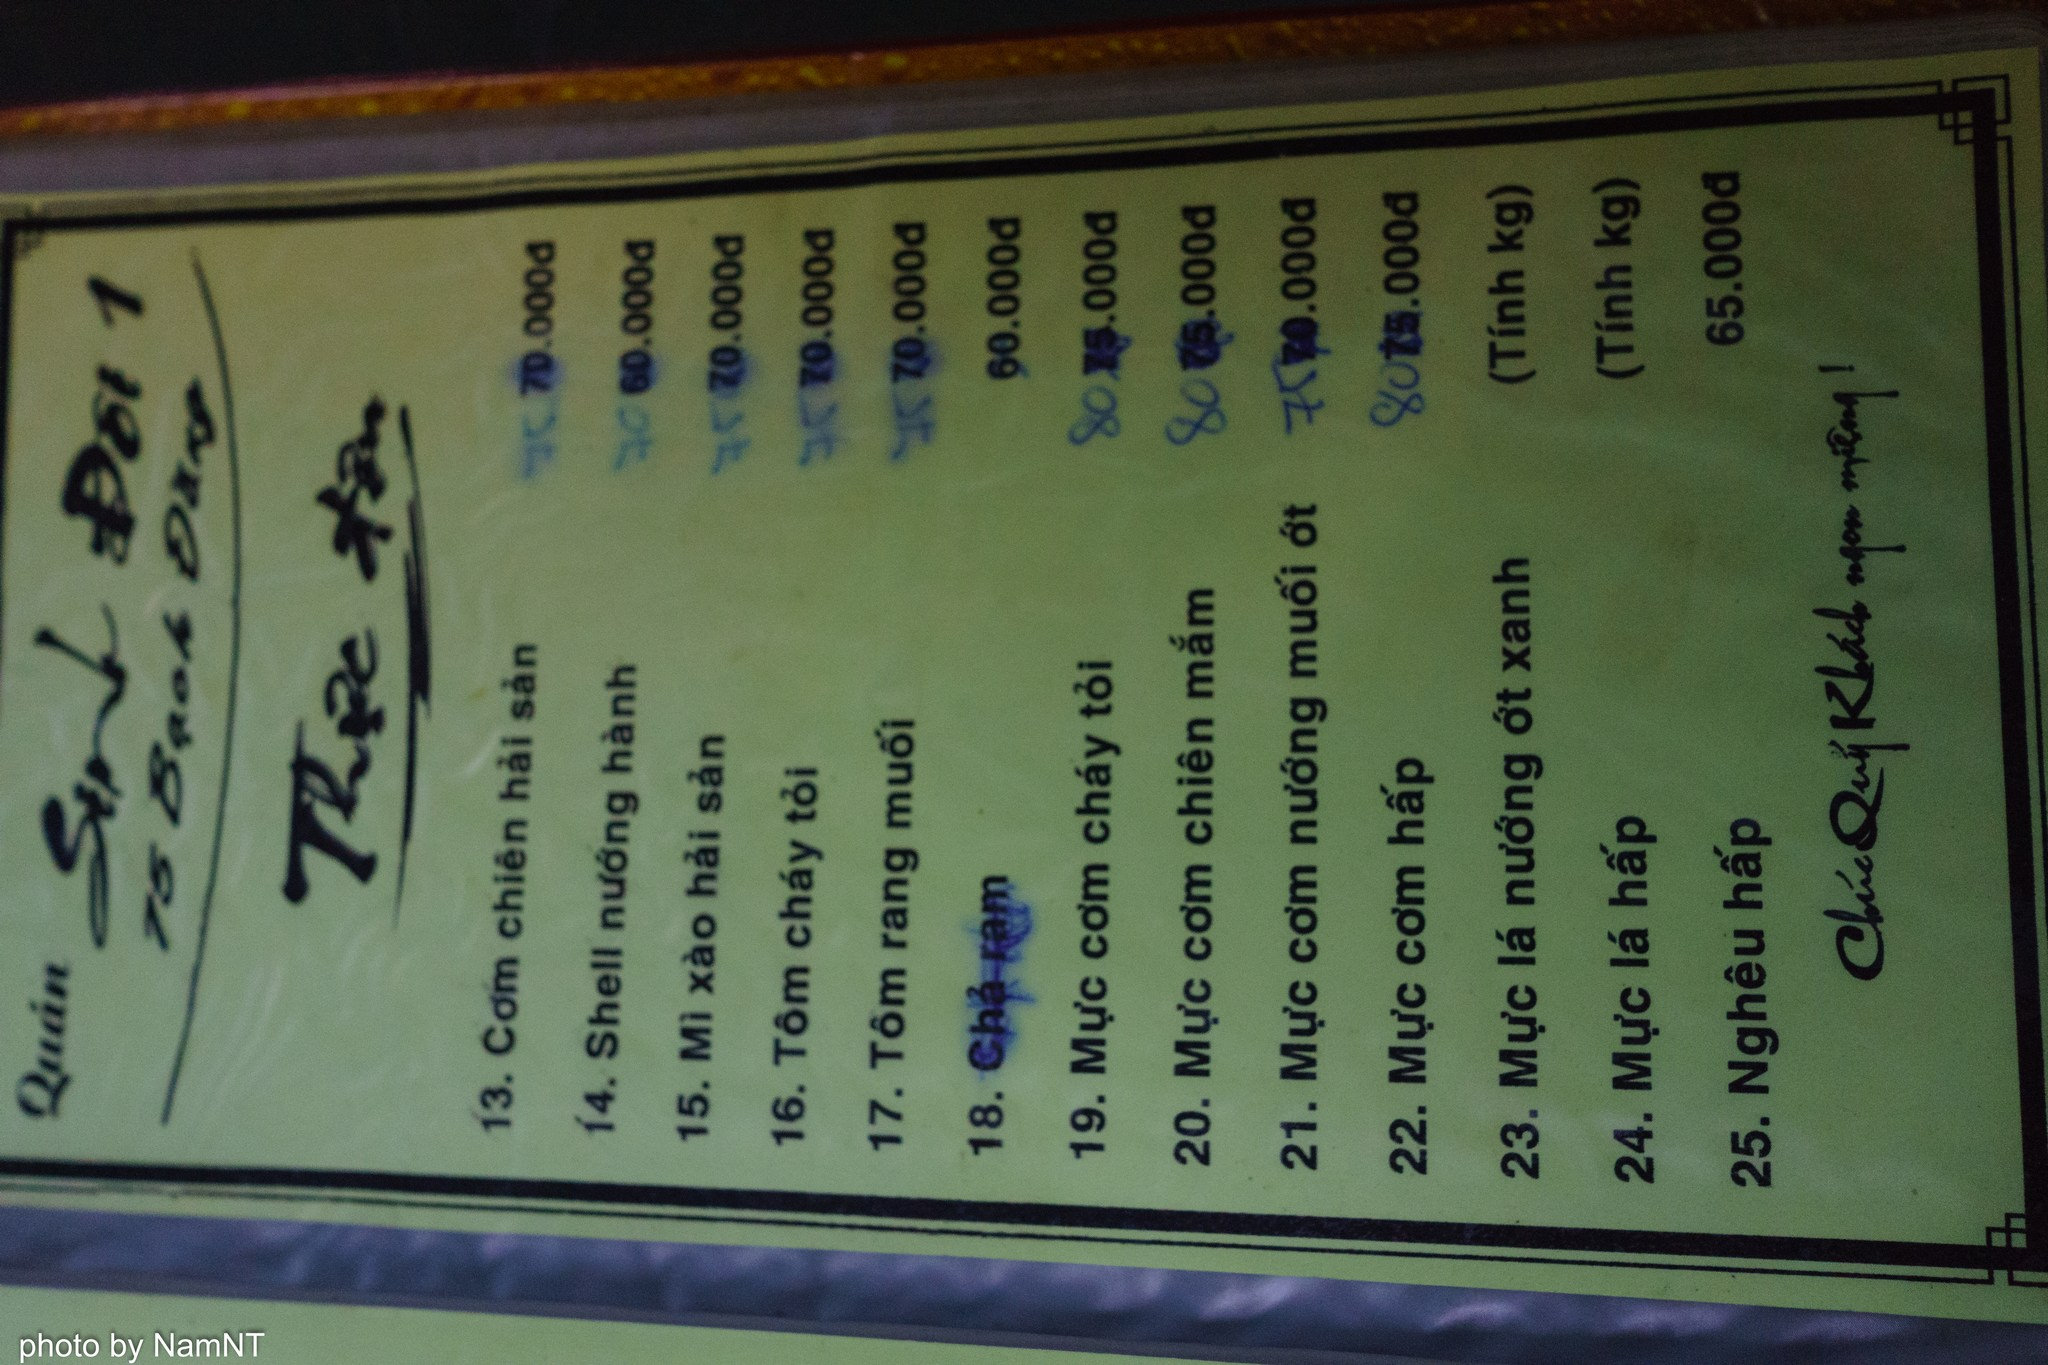 Quán
Sinh Đôi 1
75 Bạch Đằng
Thực đơn
13. Cơm chiên hải sản 75 70.000đ
14. Shell nướng hành 70 60.000đ
15. Mì xào hải sản 75 70.000đ
16. Tôm cháy tỏi 75 70.000đ
17. Tôm rang muối 75 70.000đ
18. Chả ram 60.000đ
19. Mực cơm cháy tỏi 80 75.000đ
20. Mực cơm chiên mắm 80 75.000đ
21. Mực cơm nướng muối ớt 75 70.000đ
22. Mực cơm hấp 80 75.000đ
23. Mực lá nướng ớt xanh (Tính kg)
24. Mực lá hấp (Tính kg)
25. Nghêu hấp 65.000đ
Chúc Quý Khách ngon miệng !
photo by NamNT